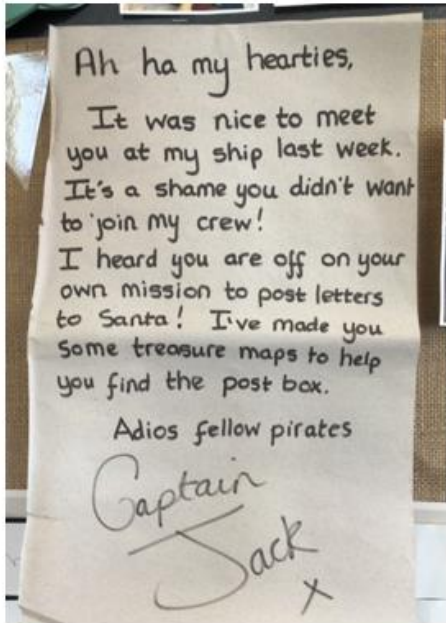 Ah ha my hearties,
It was nice to meet
you at my ship last week.
It's a shame you didn't want
to join my crew!
I heard you are off on your
own mission to post letters
to Santa! I've made you
some treasure maps to help
you find the post box.
Adios fellow pirates
Captain
Jack
x